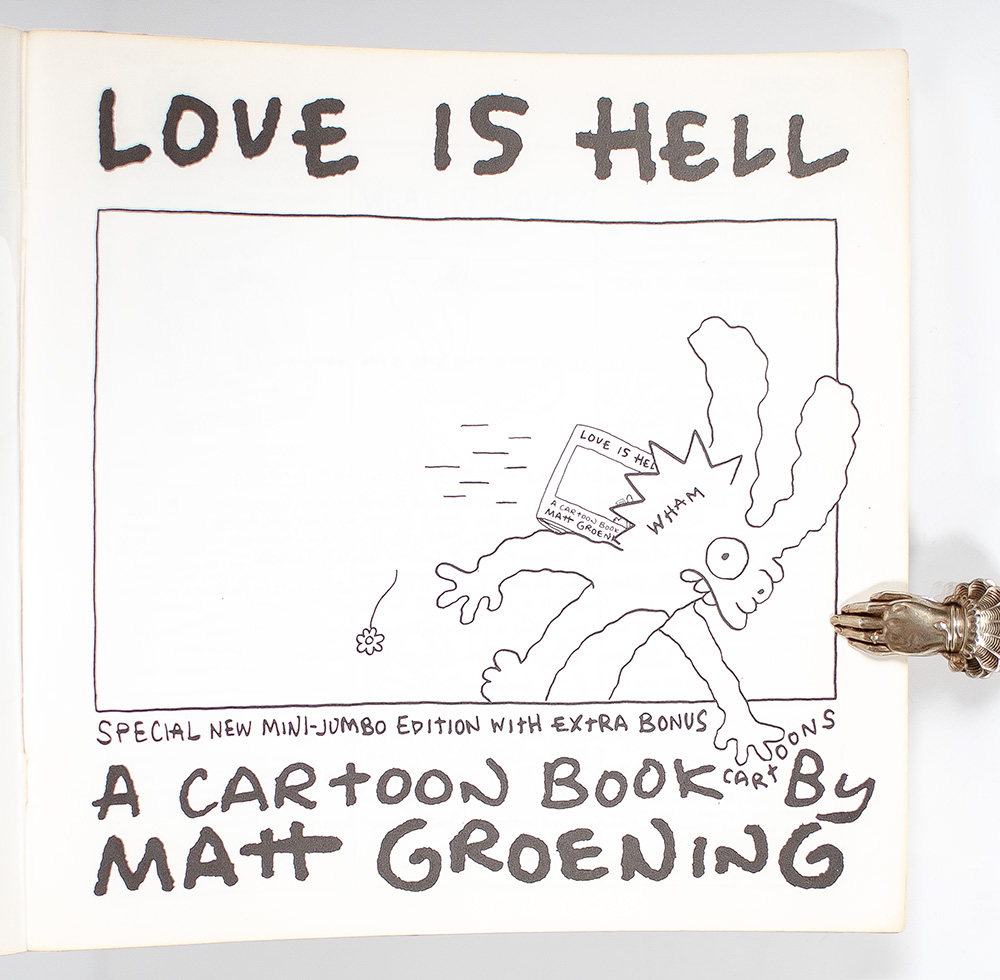 LOVE IS HELL
LOVE IS HEL
A CARTOON BOOK
MATT GROEN
WHAM
SPECIAL NEW MINI-JUMBO EDITION WITH EXTRA BONUS CARTOONS
A CARTOON BOOK BY
MATT GROENING